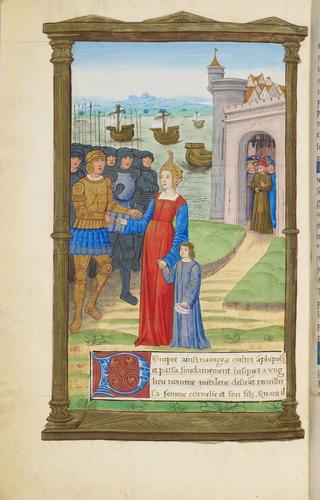 Pompee ainsi nauigea oultre aphipoli
et passa soudainement iusques a vng
lieu nomme mitilene desirāt recuillir
sa femme cornelie et son filz. Quant il